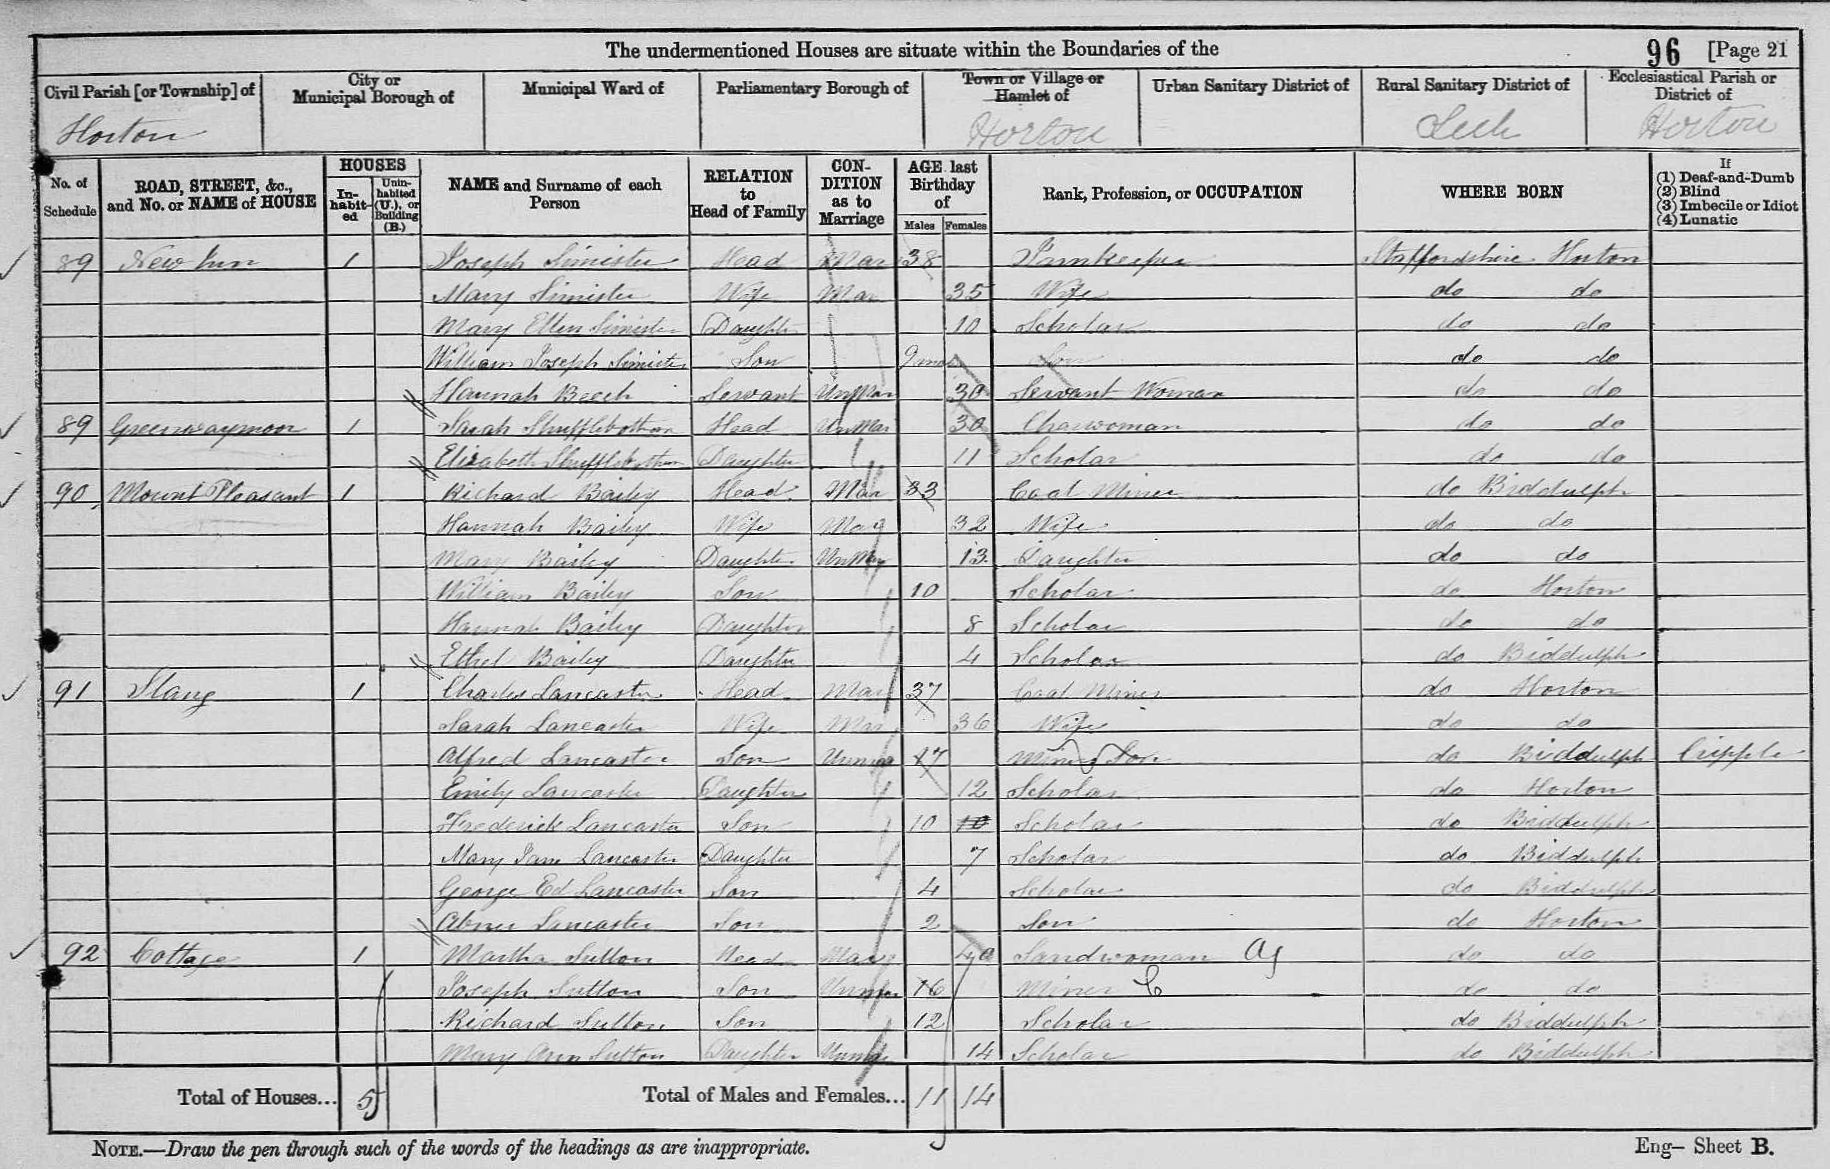 The undermentioned Houses are situate within the Boundaries of the 96 [Page 21
Civil Parish [or Township] of City or Municipal Borough of Municipal Ward of Parliamentary Borough of Town or Village or Hamlet of Urban Sanitary District of Rural Sanitary District of Ecclesiastical Parish or District of
Horton Horton Leek Horton
No. of Schedule ROAD, STREET, &c., and No. or NAME of HOUSE HOUSES In-habit-ed Unin-habited (U.), or Building (B.) NAME and Surname of each Person RELATION to Head of Family CON-DITION as to Marriage AGE last Birthday of Males Females Rank, Profession, or OCCUPATION WHERE BORN If (1) Deaf-and-Dumb (2) Blind (3) Imbecile or Idiot (4) Lunatic
89 New Inn 1 Joseph Simister Head Mar 38 Innkeeper Staffordshire Horton
Mary Simister Wife Mar 35 Wife do do
Mary Ellen Simister Daughter 10 Scholar do do
William Joseph Simister Son 9 mos Son do do
Hannah Beech Servant UnMar 30 Servant Woman do do
89 Greenwaymoor 1 Sarah Shufflebotham Head UnMar 30 Charwoman do do
Elizabeth Shufflebotham Daughter 11 Scholar do do
90 Mount Pleasant 1 Richard Bailey Head Mar 33 Coal Miner do Biddulph
Hannah Bailey Wife Mar 32 Wife do do
Mary Bailey Daughter UnMar 13 Daughter do do
William Bailey Son 10 Scholar do Horton
Hannah Bailey Daughter 8 Scholar do do
Ethel Bailey Daughter 4 Scholar do Biddulph
91 Slang 1 Charles Lancaster Head Mar 37 Coal Miner do Horton
Sarah Lancaster Wife Mar 36 Wife do do
Alfred Lancaster Son Unmar 17 Miner Son do Biddulph Cripple
Emily Lancaster Daughter 12 Scholar do Horton
Frederick Lancaster Son 10 10 Scholar do Biddulph
Mary Jane Lancaster Daughter 7 Scholar do Biddulph
George Ed Lancaster Son 4 Scholar do Biddulph
Abner Lancaster Son 2 Son do Horton
92 Cottage 1 Martha Sutton Head Mar 40 Sandwoman Ag do do
Joseph Sutton Son Unmar 16 Miner C do do
Richard Sutton Son 12 Scholar do Biddulph
Mary Ann Sutton Daughter Unmar 14 Scholar do Biddulph
Total of Houses... 5 Total of Males and Females... 11 14
NOTE.—Draw the pen through such of the words of the headings as are inappropriate. Eng— Sheet B.